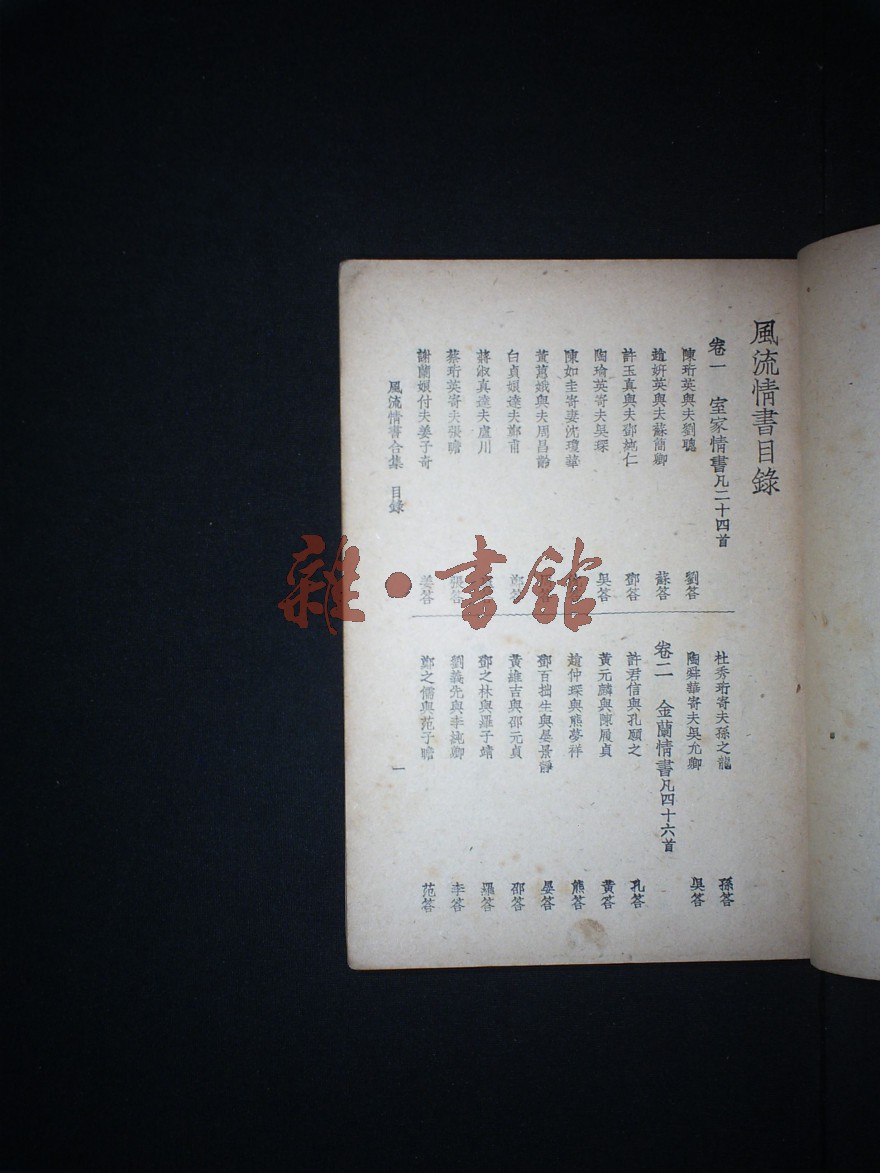 風流情書目錄
卷一 室家情書凡二十四首
陳珩英與夫劉聰 劉答
趙姸英與夫蘇簡卿 蘇答
許玉真與夫鄧純仁 鄧答
陶瑜英寄夫吳琛 吳答
陳如圭寄妻沈瓊華
黃蕚娥與夫周昌齡
白貞娘達夫鄭甫 鄭答
蔣淑真達夫盧川
蔡珩英寄夫張瞻 張答
謝蘭娘付夫姜子奇 姜答
杜秀珩寄夫孫之龍 孫答
陶舜華寄夫吳允卿 吳答
卷二 金蘭情書凡四十六首
許君信與孔願之 孔答
黃元麟與陳履貞 黃答
趙仲琛與熊夢祥 熊答
鄧百拙生與晏景靜 晏答
黃維吉與邵元貞 邵答
鄧之林與羅子靖 羅答
劉義先與李純卿 李答
鄭之儒與范子瞻 范答
風流情書合集 目錄 一
雜·書館